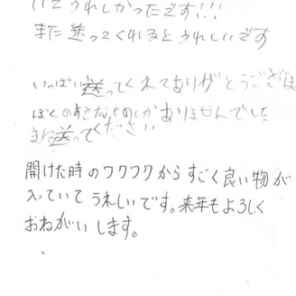 いてうれしかったです!!!
また送ってくれるとうれしいです
いっぱい送ってくれてありがとうござ
ぼくのあそな ものしかありませんでした
また送ってください
開けた時のワクワクからすごく良い物が
入っていてうれしいです。来年もよろしく
おねがいします。